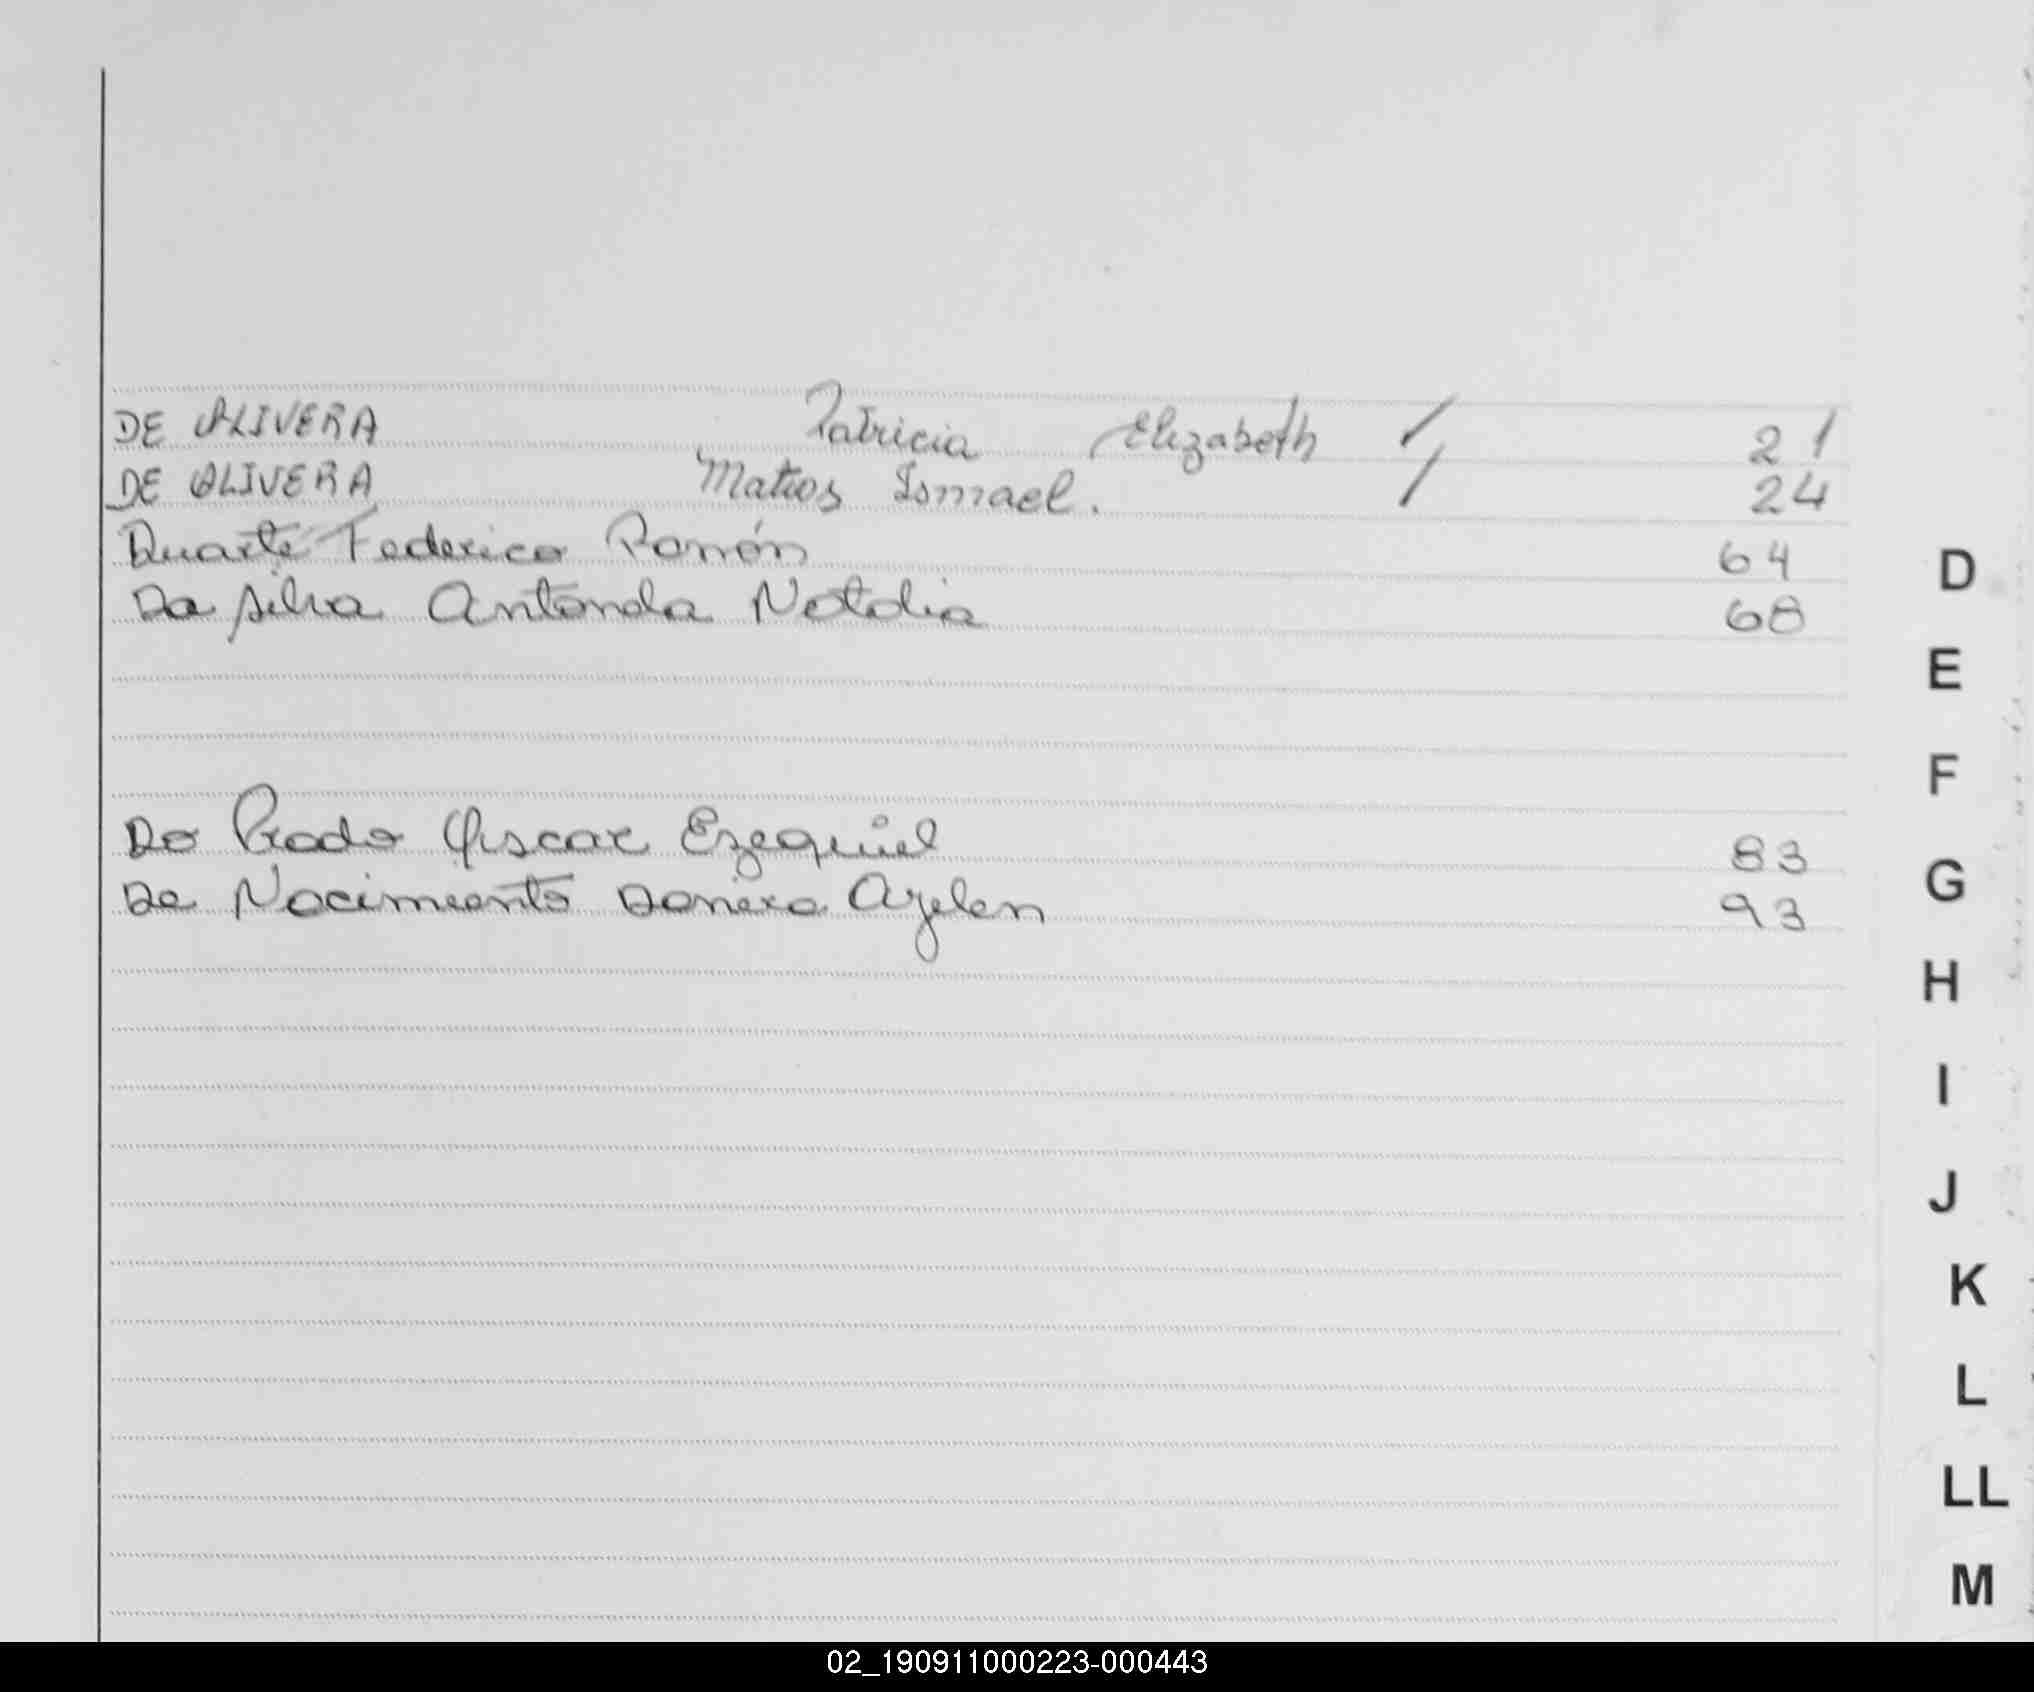 DE OLIVERA Patricia Elizabeth / 21
DE OLIVERA Matias Ismael. / 24
Duarte Federico Ramón 64
Da Silva Antonela Natalia 68
D
E
F
Do Prado Oscar Ezequiel 83
G
De Nacimiento Daniera Ayelen 93
H
I
J
K
L
LL
M
02_190911000223-000443